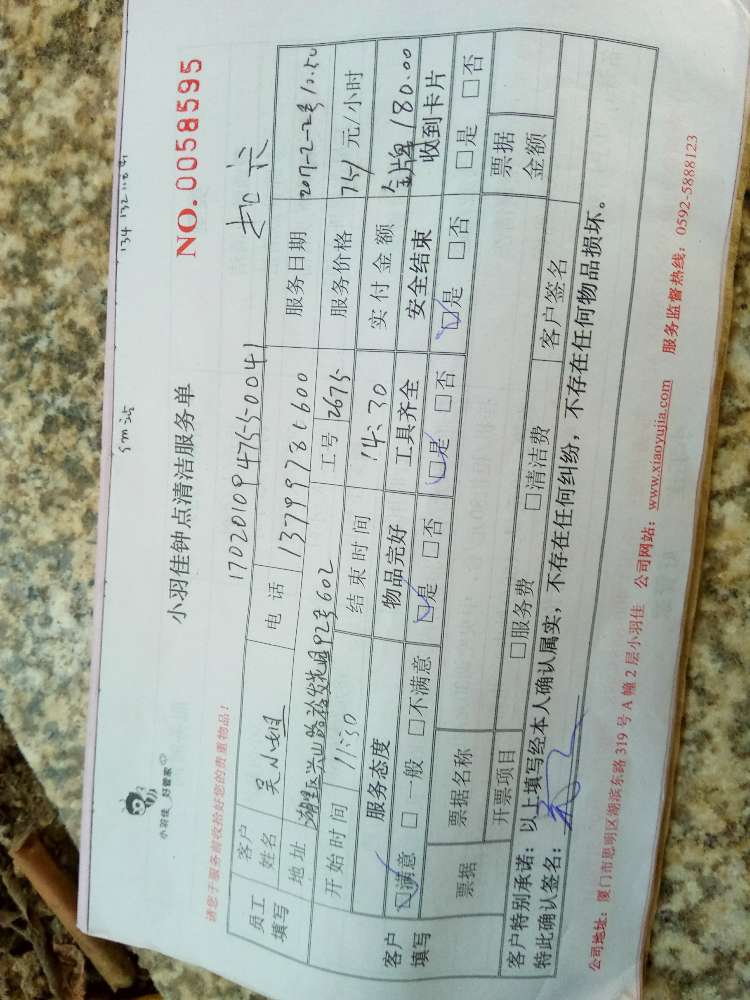 134 132 118
小羽佳 好管家
小羽佳钟点清洁服务单
NO. 0058595
请您于服务前收拾好您的贵重物品!
员工填写
客户姓名 吴小姐 电话 服务日期
地址 工号 2675 服务价格 75/ 元/小时
开始时间 11:30 结束时间 14:30 实付金额 金牌 180.00
客户填写
服务态度 物品完好 工具齐全 安全结束 收到卡片
☑满意 □一般 □不满意 ☑是 □否 ☑是 □否 ☑是 □否 □是 □否
票据 票据名称 票据金额
开票项目 □服务费 □清洁费 客户签名
客户特别承诺:以上填写经本人确认属实,不存在任何纠纷,不存在任何物品损坏。
特此确认签名:
公司地址:厦门市思明区湖滨东路 319 号 A 幢 2 层小羽佳 公司网站:www.xiaoyujia.com 服务监督热线:0592-5888123